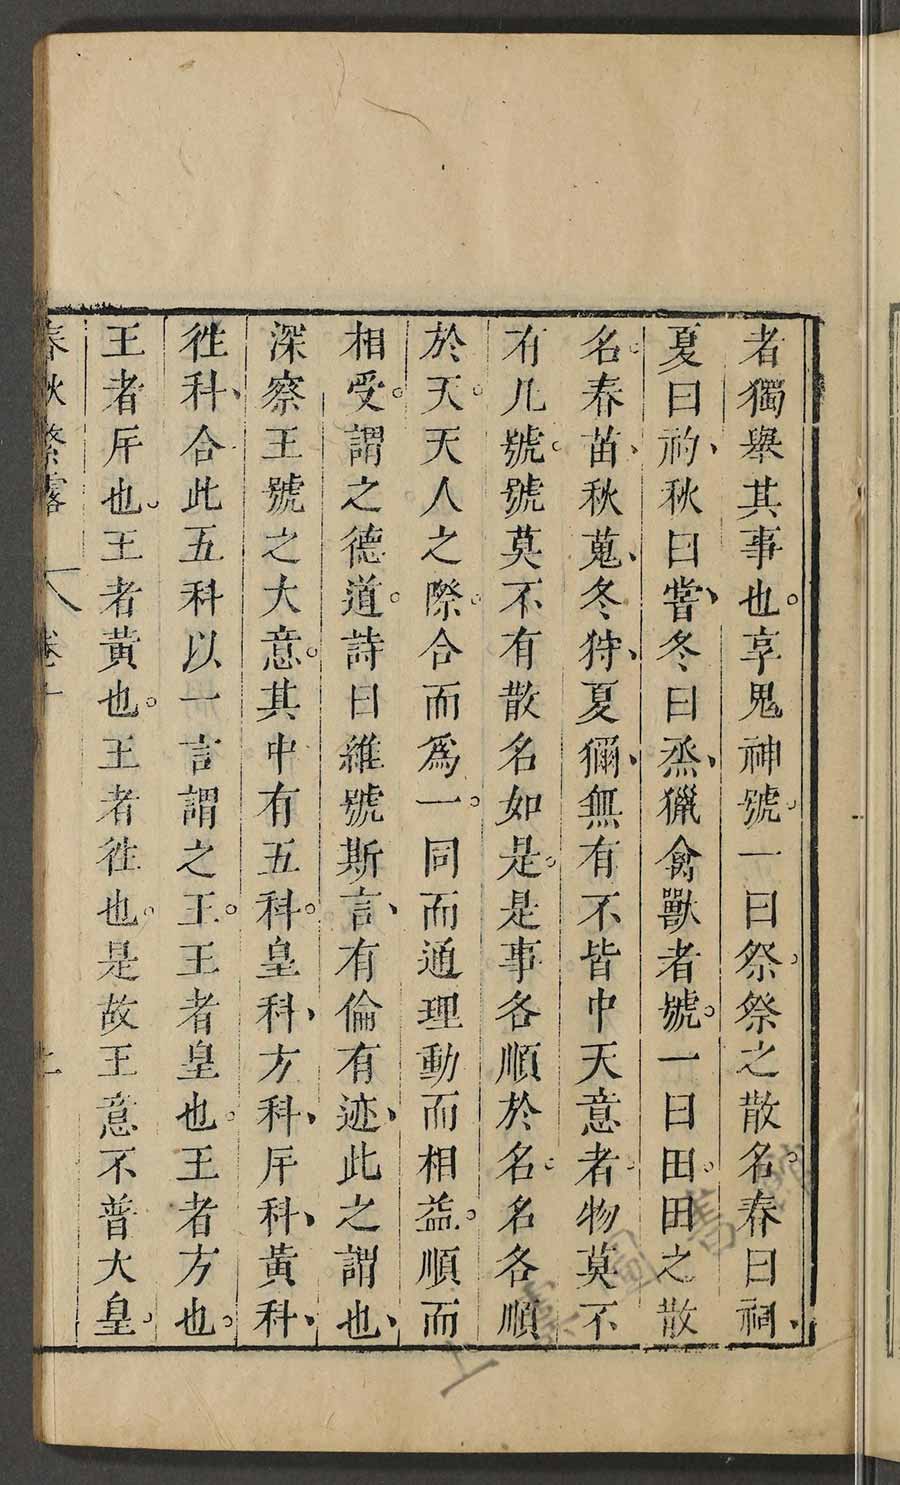 者獨舉其事也。享鬼神號。一曰祭。祭之散名。春曰祠、
夏曰礿、秋曰嘗、冬曰烝、獵禽獸者號。一曰田。田之散
名。春苗、秋蒐、冬狩、夏獮、無有不皆中天意者。物莫不
有凡號。號莫不有散名如是。是事各順於名。名各順
於天。天人之際。合而爲一。同而通理動而相益。順而
相受。謂之德道。詩曰維號斯言、有倫有迹、此之謂也、
深察王號之大意。其中有五科。皇科、方科、厈科、黃科、
徃科、合此五科以一言謂之王。王者皇也。王者方也。
王者厈也。王者黃也。王者徃也。是故王意不普大皇。
春秋繁露 卷十